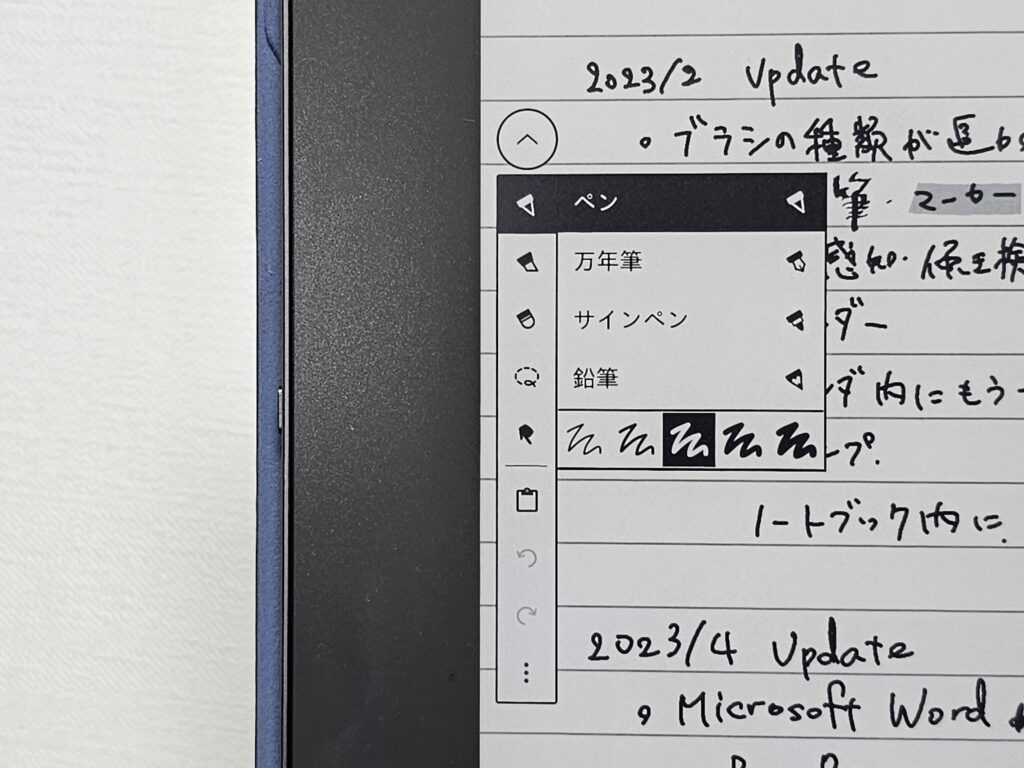 2023/2 Update
・ブラシの種類が追から
ペン
筆・マーカー
万年筆
感知・
サインペン
ダー
鉛筆
ダ内にもう
ープ.
ノートブック内に.
2023/4 Update
・Microsoft Word